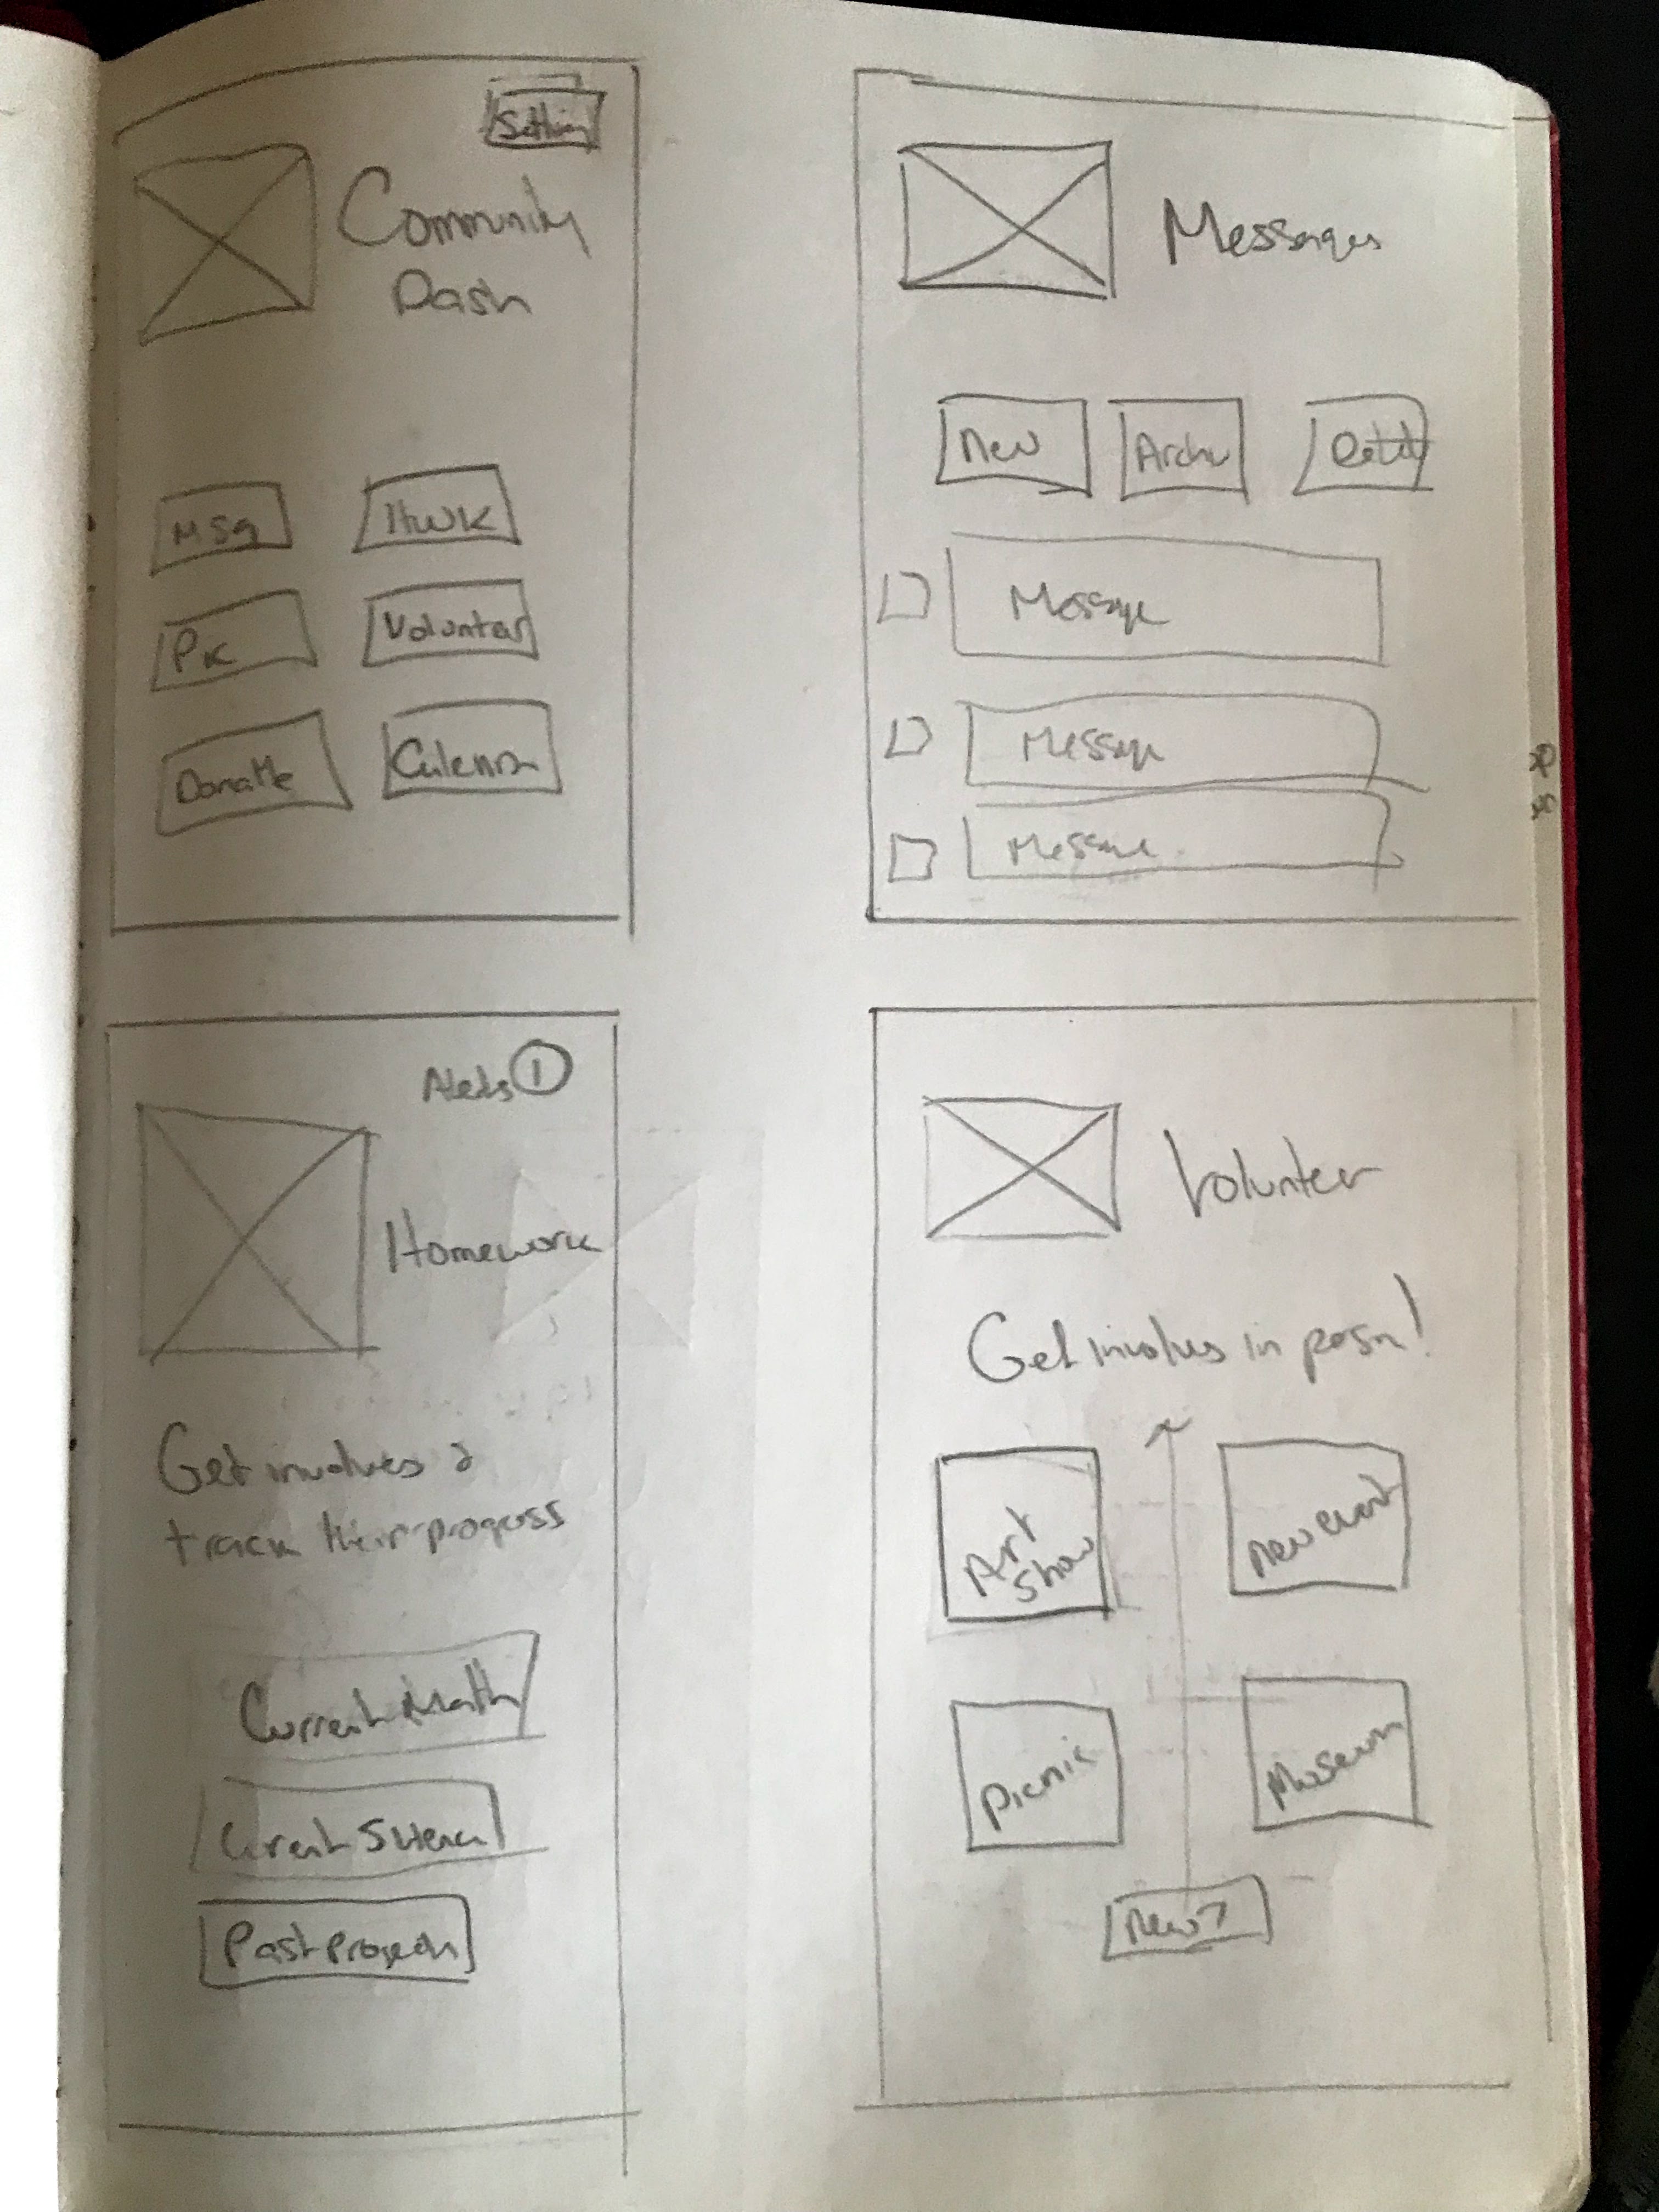 Setting
Community
Dash
Msg
HWK
Pic
Volunter
Donatte
Messages
New
Message
Message
Message
Alerts 1
Homework
Get involves &
track their progress
Current Math
Past projects
Volunteer
Get involves in person!
Art
Show
New event
Picnic
Museum
New?